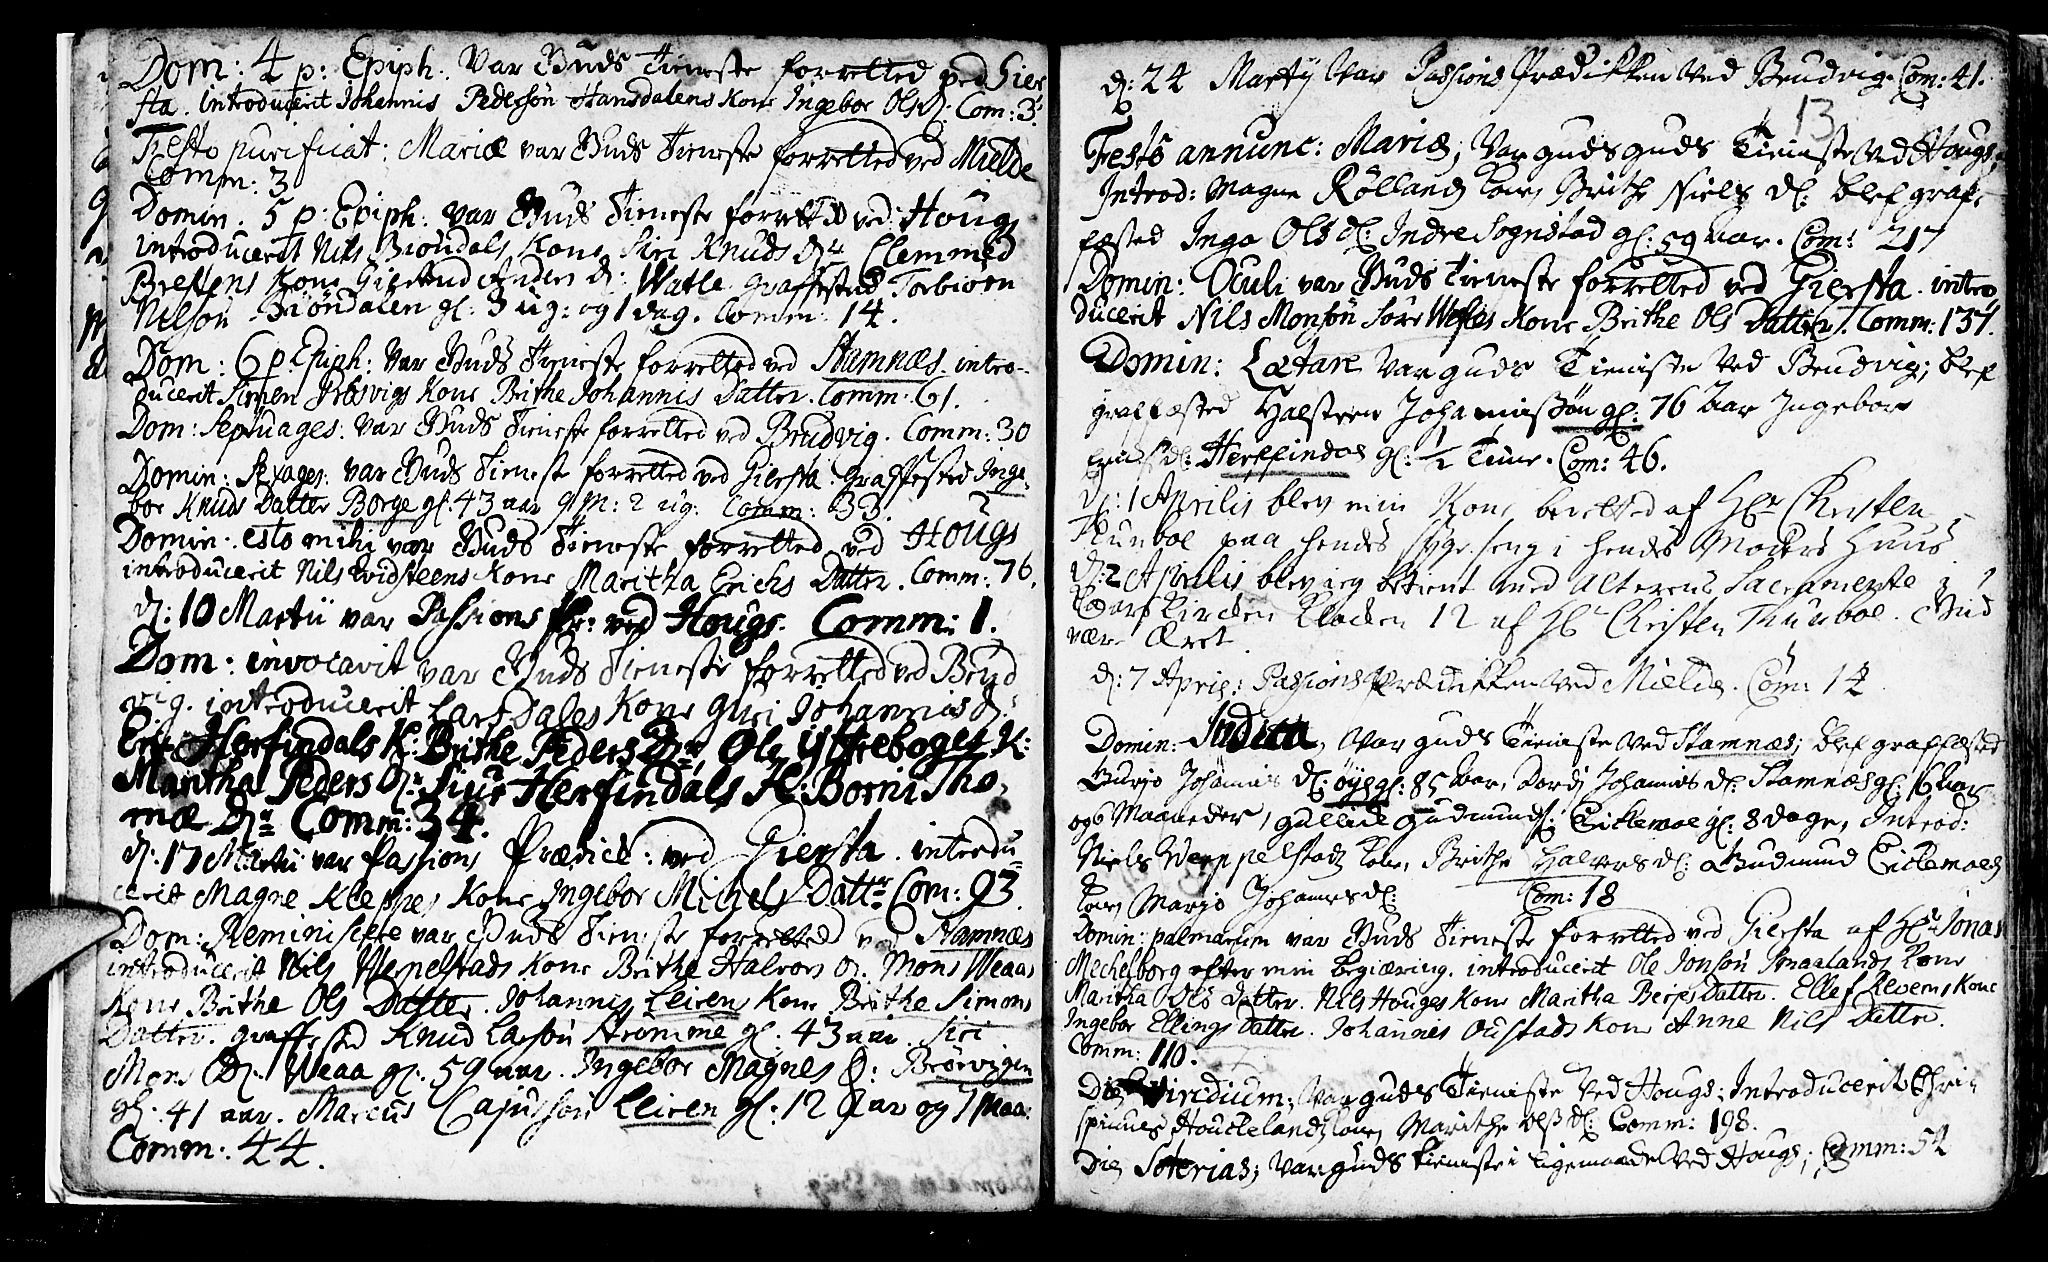 Dom: 4 p: Epiph: Var Guds Tieneste forretted ved Gier
sta. introducerit Johannis Pedersøn Hansdalens Kone Ingebor Ols D: Com: 3.
Festo purificat: Mariæ var Guds Tieneste forretted ved Mielde
Comm: 3
Domin. 5 p: Epiph: var Guds Tieneste forretted ved Houg
introducerit Nils Brøndals Kone Siri Knuds D: Clemmed
Brekens Kone Giertrud Anders D: Watle graffested Torbiørn
Nilsøn Brøndalen gl: 3 ug: og 1 dag. Comm: 14.
Dom: 6 p. Epiph: var Guds Tieneste forretted ved Stamnæs. intro-
ducerit Simen Kone Brithe Johannis Datter. Comm: 61.
Dom: Septuages: var Guds Tieneste forretted ved Brudvig. Comm: 30
Domin: Sexages: var Guds Tieneste forretted ved Giersta. graffested Inge-
bor Knuds Datter Borge gl: 43 aar 9 M: 2 ug: Comm: 33.
Domin. esto mihi var Guds Tieneste forretted ved Hougs
introducerit Nils Evidsteens Kone Maritha Erichs Datter. Comm: 76.
d: 10 Martii var Passions Pr: ved Hougs. Comm: 1.
Dom: invocavit var Guds Tieneste forretted ved Brud
vig. introducerit Lars Dales Kone Guri Johannis D:
Erik Herfindals K: Brithe Peders Dr, Ole ystrebogs K:
Maritha Peders Dr Siur Herfindals K: Borni Tho,
mæ Dr Comm: 34.
d: 17 Martii var Passions Prædick: ved Giersta. introdu-
cerit Magne Kleppes Kone Ingebor Michels Dattr Com: 93.
Dom: Reminiscere var Guds Tieneste forretted ved Stamnæs
introducerit Nils Wernelstads Kone Brithe Halvors D. Mons Weaas
Kone Brithe Ols Datter. Johannis Leirens Kone Brithe Simons
Datter. graffested Knud Larsøn Strømme gl: 43 aar. Siri
Mons D: Weaa gl: 59 aar. Ingebor Magnes D: Brørvigen
gl: 41 aar. Marcus Cajussøn Leiren gl: 12 Aar og 7 maa:
Comm: 44.
d: 24 Martij Var Passions Prædikken ved Brudvig. Com: 41.
13
Festo annunc: Mariæ; Var guds guds Tieniste ved Hougs,
Introd: Magne Rølland Kone, Brithe Niels D: blef graf-
fæsted Inga Ols D: Indre Sognstad gl: 59 aar. Com: 217
Domin: Oculi var Guds Tieneste forretted ved Giersta. intro
ducerit Nils Monsøn Kone Brithe Ols Datter. Comm: 137.
Domin: Lætare Var guds Tieniste ved Brudvig; blef
graffæsted Halsteen Johannissøn gl: 76 aar Ingebor
D: Herffindal gl: 1/2 Time. Com: 46.
d: 1 Aprilis blev min Kone berettet af Hr Christen
Thunboe paa hendes Syge seng i hendes Moders Huus
d: 2 Aprilis blev ieg betient med Alterens Sacramente i
Kirchen Klocken 12 af Hr Christen Thunboe. Gud
være Æret
d: 7 April: Passions Prædikken ved Mielde. Com: 14
Domin: Judica, Var guds Tieniste ved Stamnæs; blef graffæsted
Guro Johannis D: øye gl: 85 aar, Dordi Johannis D: Stamnæs gl: 16 aar
og 6 Maaneder, gullich gudmunds: Eickemoe gl: 8 dage, Introd:
Niels Weppelstad Kone, Brithe Halvors D: Gudmund Eickemoes
Kone Marjo Johannes D: Com: 18
Domin: palmarum var Guds Tieneste forretted ved Giersta af Hr Jonas
Mechelborg efter min begiæring. introducerit Ole Jonsøn Smaalands Kone
Maritha Ols Datter. Nils Houges Kone Maritha Berjes Datter. Ellef Kone
Ingebor Ellings Datter. Johannes Oustads Kone Anne Nils Datter.
Comm: 110.
Die Viridium; Var guds Tieniste ved Hougs; Introducerit Chri-
Houckelands Kone, Marithe Olß D: Comm: 198.
Die Soterias; Var guds Tieniste i ligemaade ved Hougs; Comm: 54